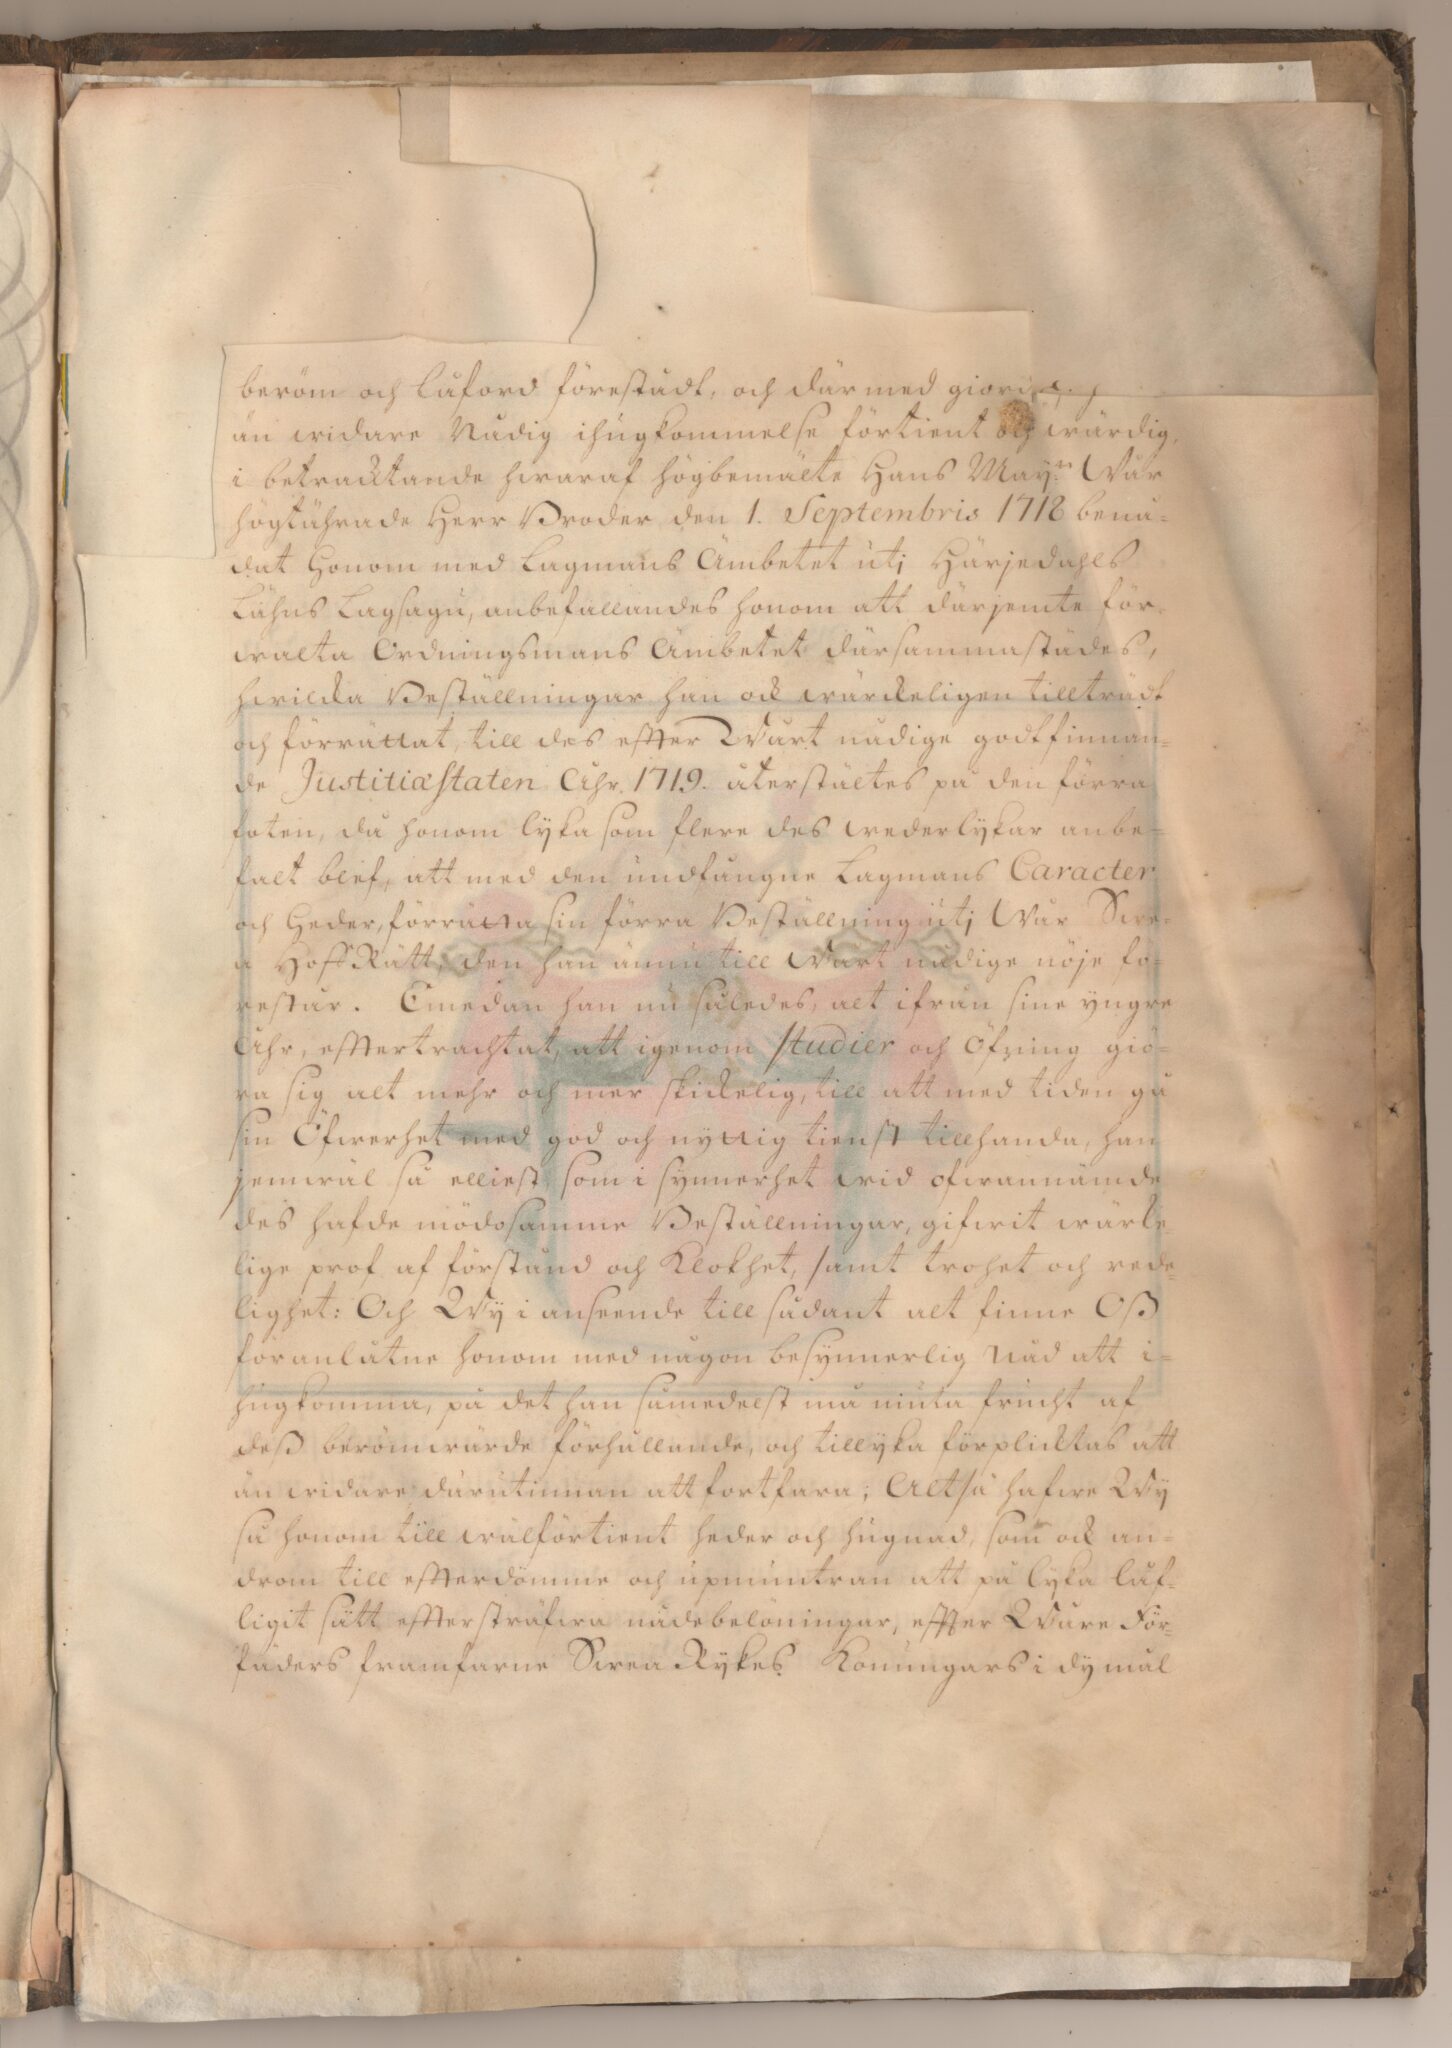 beröm och låford förestådt, och där med giordt sig
än widare Nådig ihugkommelse förtient och wärdig,
i betracktande hwaraf högbemälte Hans May:tt Wår
högtährade Herr Broder den 1. Septembris 1718 benå-
dat Honom med Lagmans Ämbetet utj Härjedahls
Lähns Lagsagu, anbefallandes honom att därjemte för-
walta Ordningsmans Ämbetet därsammastädes,
hwilcka Beställningar han ock wärckeligen tillträdt
och förrättat, till des effter Wårt nådige godtfinnan-
de Justitiæstaten Åhr. 1719. återstältes på den förra
foten, då honom lyka som flere des wederlykar anbe-
falt blef, att med den undfångne Lagmans Caracter
och Heder, förrätta sin förra Beställning utj Wår Swe-
a Hoff Rätt, den han ännu till Wårt nådige nöje fö-
restår. Emedan han nu således, alt ifrån sine yngre
Åhr, effter trachtat, att igenom studier och Öfning giö-
ra sig alt mehr och mer skickelig, till att med tiden gå
sin Öfwerhet med god och nyttig tienst tillhanda, han
jemwäl så elliest som i synnerhet wid ofwannämde
des hafde mödosamme Beställningar, gifwit wärke-
lige prof af förstånd och Klokhet, samt trohet och rede-
lighet: Och Wy i anseende till sådant alt finne Oß
foranlåtne honom med någon besynnerlig Nåd att i-
hugkomma, på det han såmedelst må niuta frucht af
deß berömwärde förhållande, och tillyka förplicktas att
än widare därutinnan att fortfara; Altså hafwe Wy
så honom till wälförtient heder och hugnad, som ock an-
drom till effterdömme och upmuntran att på lyka låf-
ligit sätt effter sträfwa nådebelöningar, effter Wåre För-
fäders framfarne Swea Rykes Konungars i dy mål